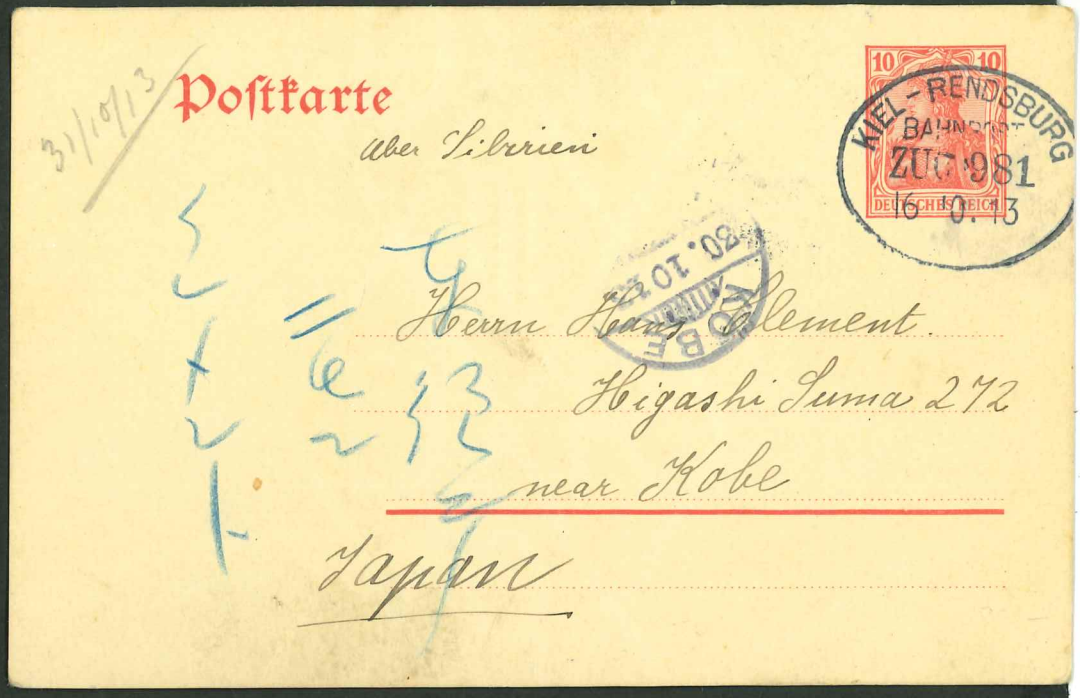 31/10/13
Postkarte
aber Sibirien
10 10
DEUTSCHES REICH
KIEL-RENDSBURG
BAHNPOST
ZUG 981
16 10.13
30.10.13
KOBE
Herrn Hans Clement.
Higashi Suma 272
near Kobe
Japan
東須磨
二七二